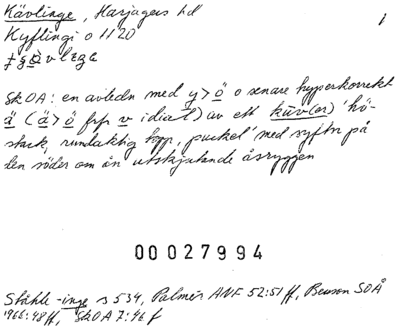 Kävlinge, Harjagers hd
1
Kyflingi o 1120
SkOA: en avledn med y > ö o senare hyperkorrekt
ä (ä > ö frp v i dial) av ett kūv(er) 'hö-
stack, rundaktig hop, puckel' med syftn på
den söder om ån utskjutande åsryggen
00027994
Ståhle -inge s 534, Palmér ANF 52:51 ff, Benson SOÅ
1966:48 ff, SkOA 7:46 f